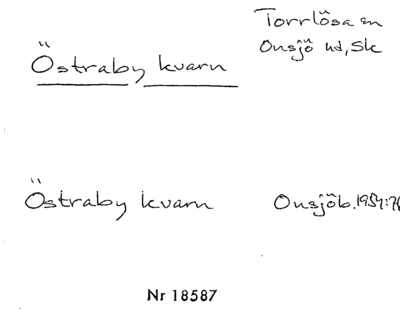 Torrlösa sn
Östraby kvarn
Onsjö hd, Sk
Östraby kvarn
Onsjöb. 1954:
Nr 18587